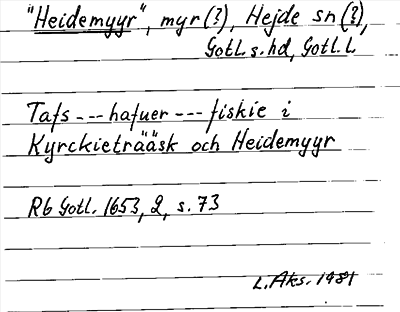 "Heidemyyr", myr (?), Hejde sn (?),
Gotl. s. hd, Gotl. L.
Tafs --- hafuer --- fiskie i
Kyrckieträäsk och Heidemyyr
Rb Gotl. 1653, 2, s. 73
L. Aks. 1981